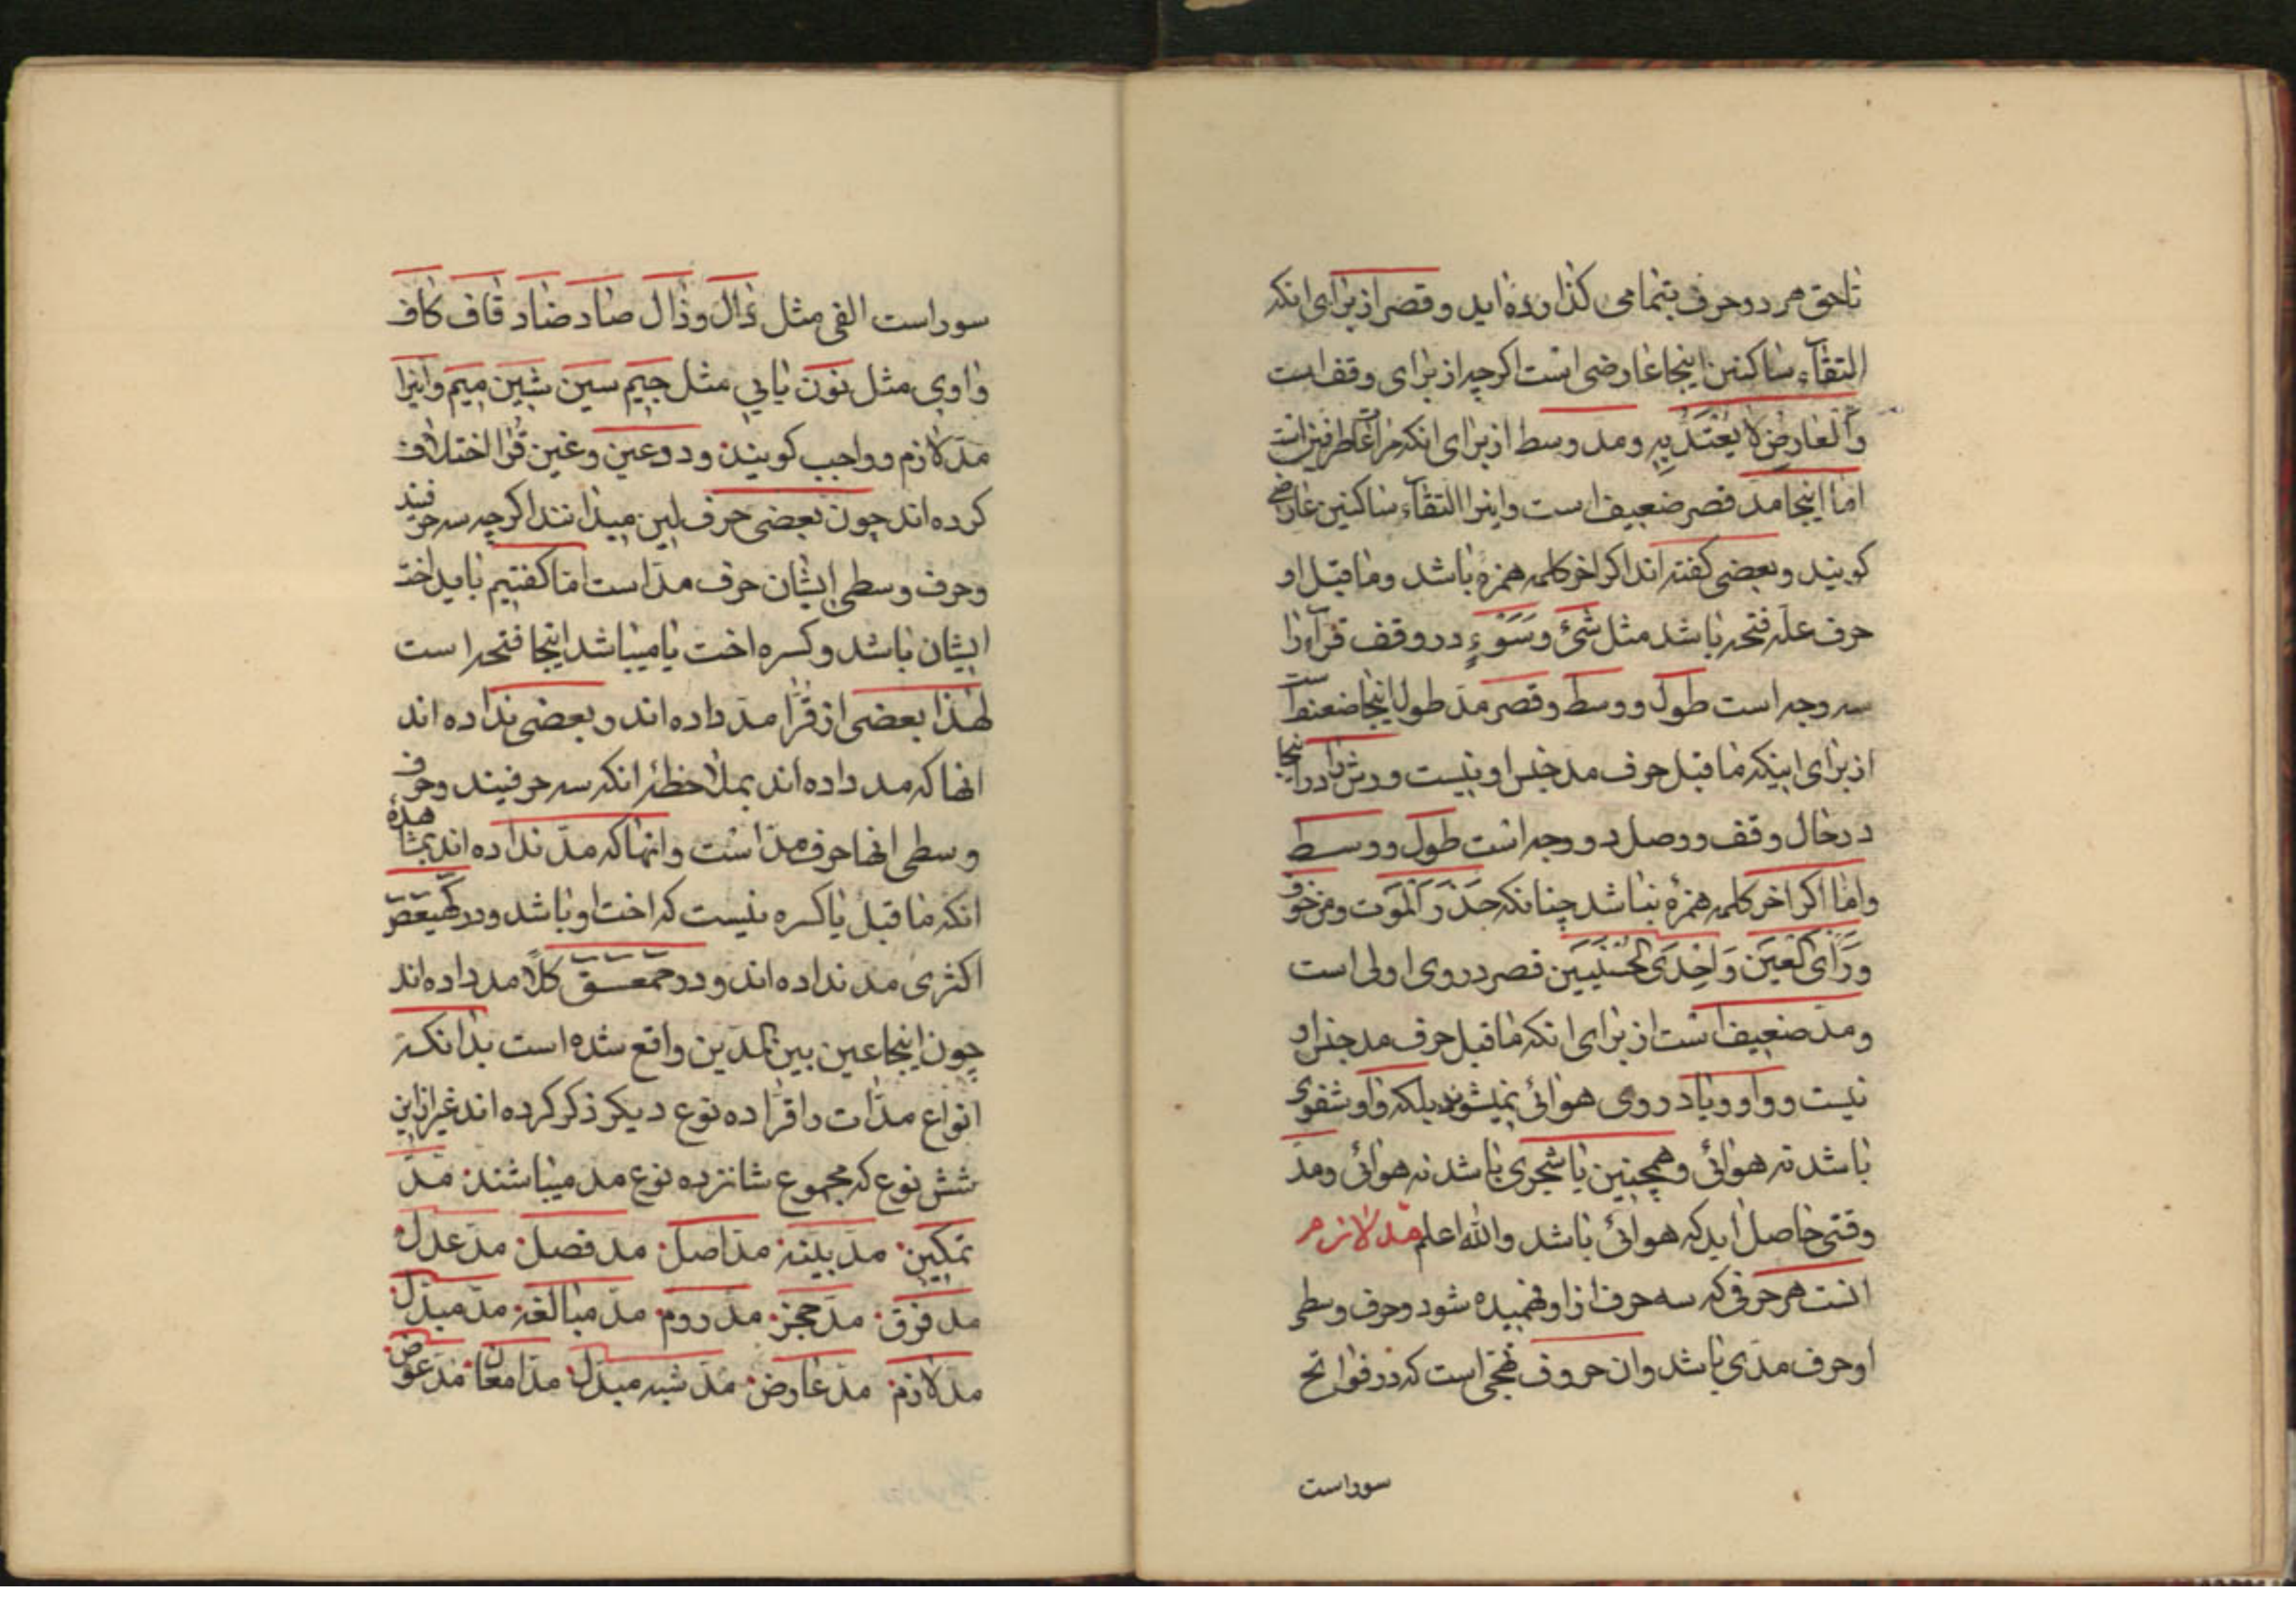 تا حق هر دو حرف بتمامی کذارده اید و قصر از برای انکه
التقآء ساکنین اینجا عارضی است اکرچه از برای وقف است
وَالعارِضُ لا یُعْتَدُّ بِهِ و مد وسط از برای انکه مراعات طرفین است
اما اینجا مد قصر ضعیف است و اینرا التقآء ساکنین عارضی
کویند و بعضی کفته اند اکر اخر کلمه همزه باشد و ما قبل او
حرف عله فتحه باشد مثل شَیْءٌ وَسَوْءٍ در وقف قرآء را
سه وجه است طول و وسط و قصر مد طول اینجا ضعیف است
از برای اینکه ما قبل حرف مد جنس او نیست ورش را در اینجا
در حال وقف و وصل دو وجه است طول و وسط
و اما اکر اخر کلمه همزه نباشد چنانکه حَذَرَ الْمَوْت و من خوف
وَرَأْیَ الْعَیْن وَاِحْدَی الْحُسْنَیَیْن قصر در وی اولی است
و مد ضعیف است از برای انکه ما قبل حرف مد جنس او
نیست و واو و یا در وی هوائی نمیشوند بلکه واو شفوی
باشد نه هوائی و همچنین یا شجری باشد نه هوائی و مدّ
وقتی حاصل اید که هوائی باشد والله اعلم مدّ لازم
انست هر حرفی که سه حرف از او فهمیده شود و حرف وسطی
او حرف مدّی باشد و ان حروف تهجّی است که در فواتح
سور است
سور است الفی مثل دال و ذال صاد ضاد قاف کاف
واوی مثل نون یایی مثل جیم سین شین میم و اینرا
مدّ لازم و واجب کویند و در عین و غین قُرّا اختلاف
کرده اند چون بعضی حرف لین میدانند اکرچه سه حرفیند
و حرف وسطی ایشان حرف مدّ است اما کفتیم باید اخت
ایشان باشد و کسره اخت یا میباشد اینجا فتحه است
لهذا بعضی از قُرّا مدّ داده اند و بعضی نداده اند
انها که مد داده اند بملاحظهٔ انکه سه حرفیند و حرف
وسطی انها حرف مدّ است و انها که مدّ نداده اند بمشاهدهٔ
انکه ما قبل یا کسره نیست که اخت او باشد و در کهیعص
اکثری مد نداده اند و در حمعسق کلاً مد داده اند
چون اینجا عین بین المدین واقع شده است بدانکه
انواع مدّات را قرّا ده نوع دیکر ذکر کرده اند غیر از این
شش نوع که مجموع شانزده نوع مد میباشند مدّ
تمکین مدّ بینه مدّ اصل مد فصل مدّ عدل
مد فرق مدّ حجز مدّ روم مدّ مبالغه مدّ مبدل
مدّ لازم مدّ عارض مدّ شبه مبدل مدّ امعان مدّ عوض